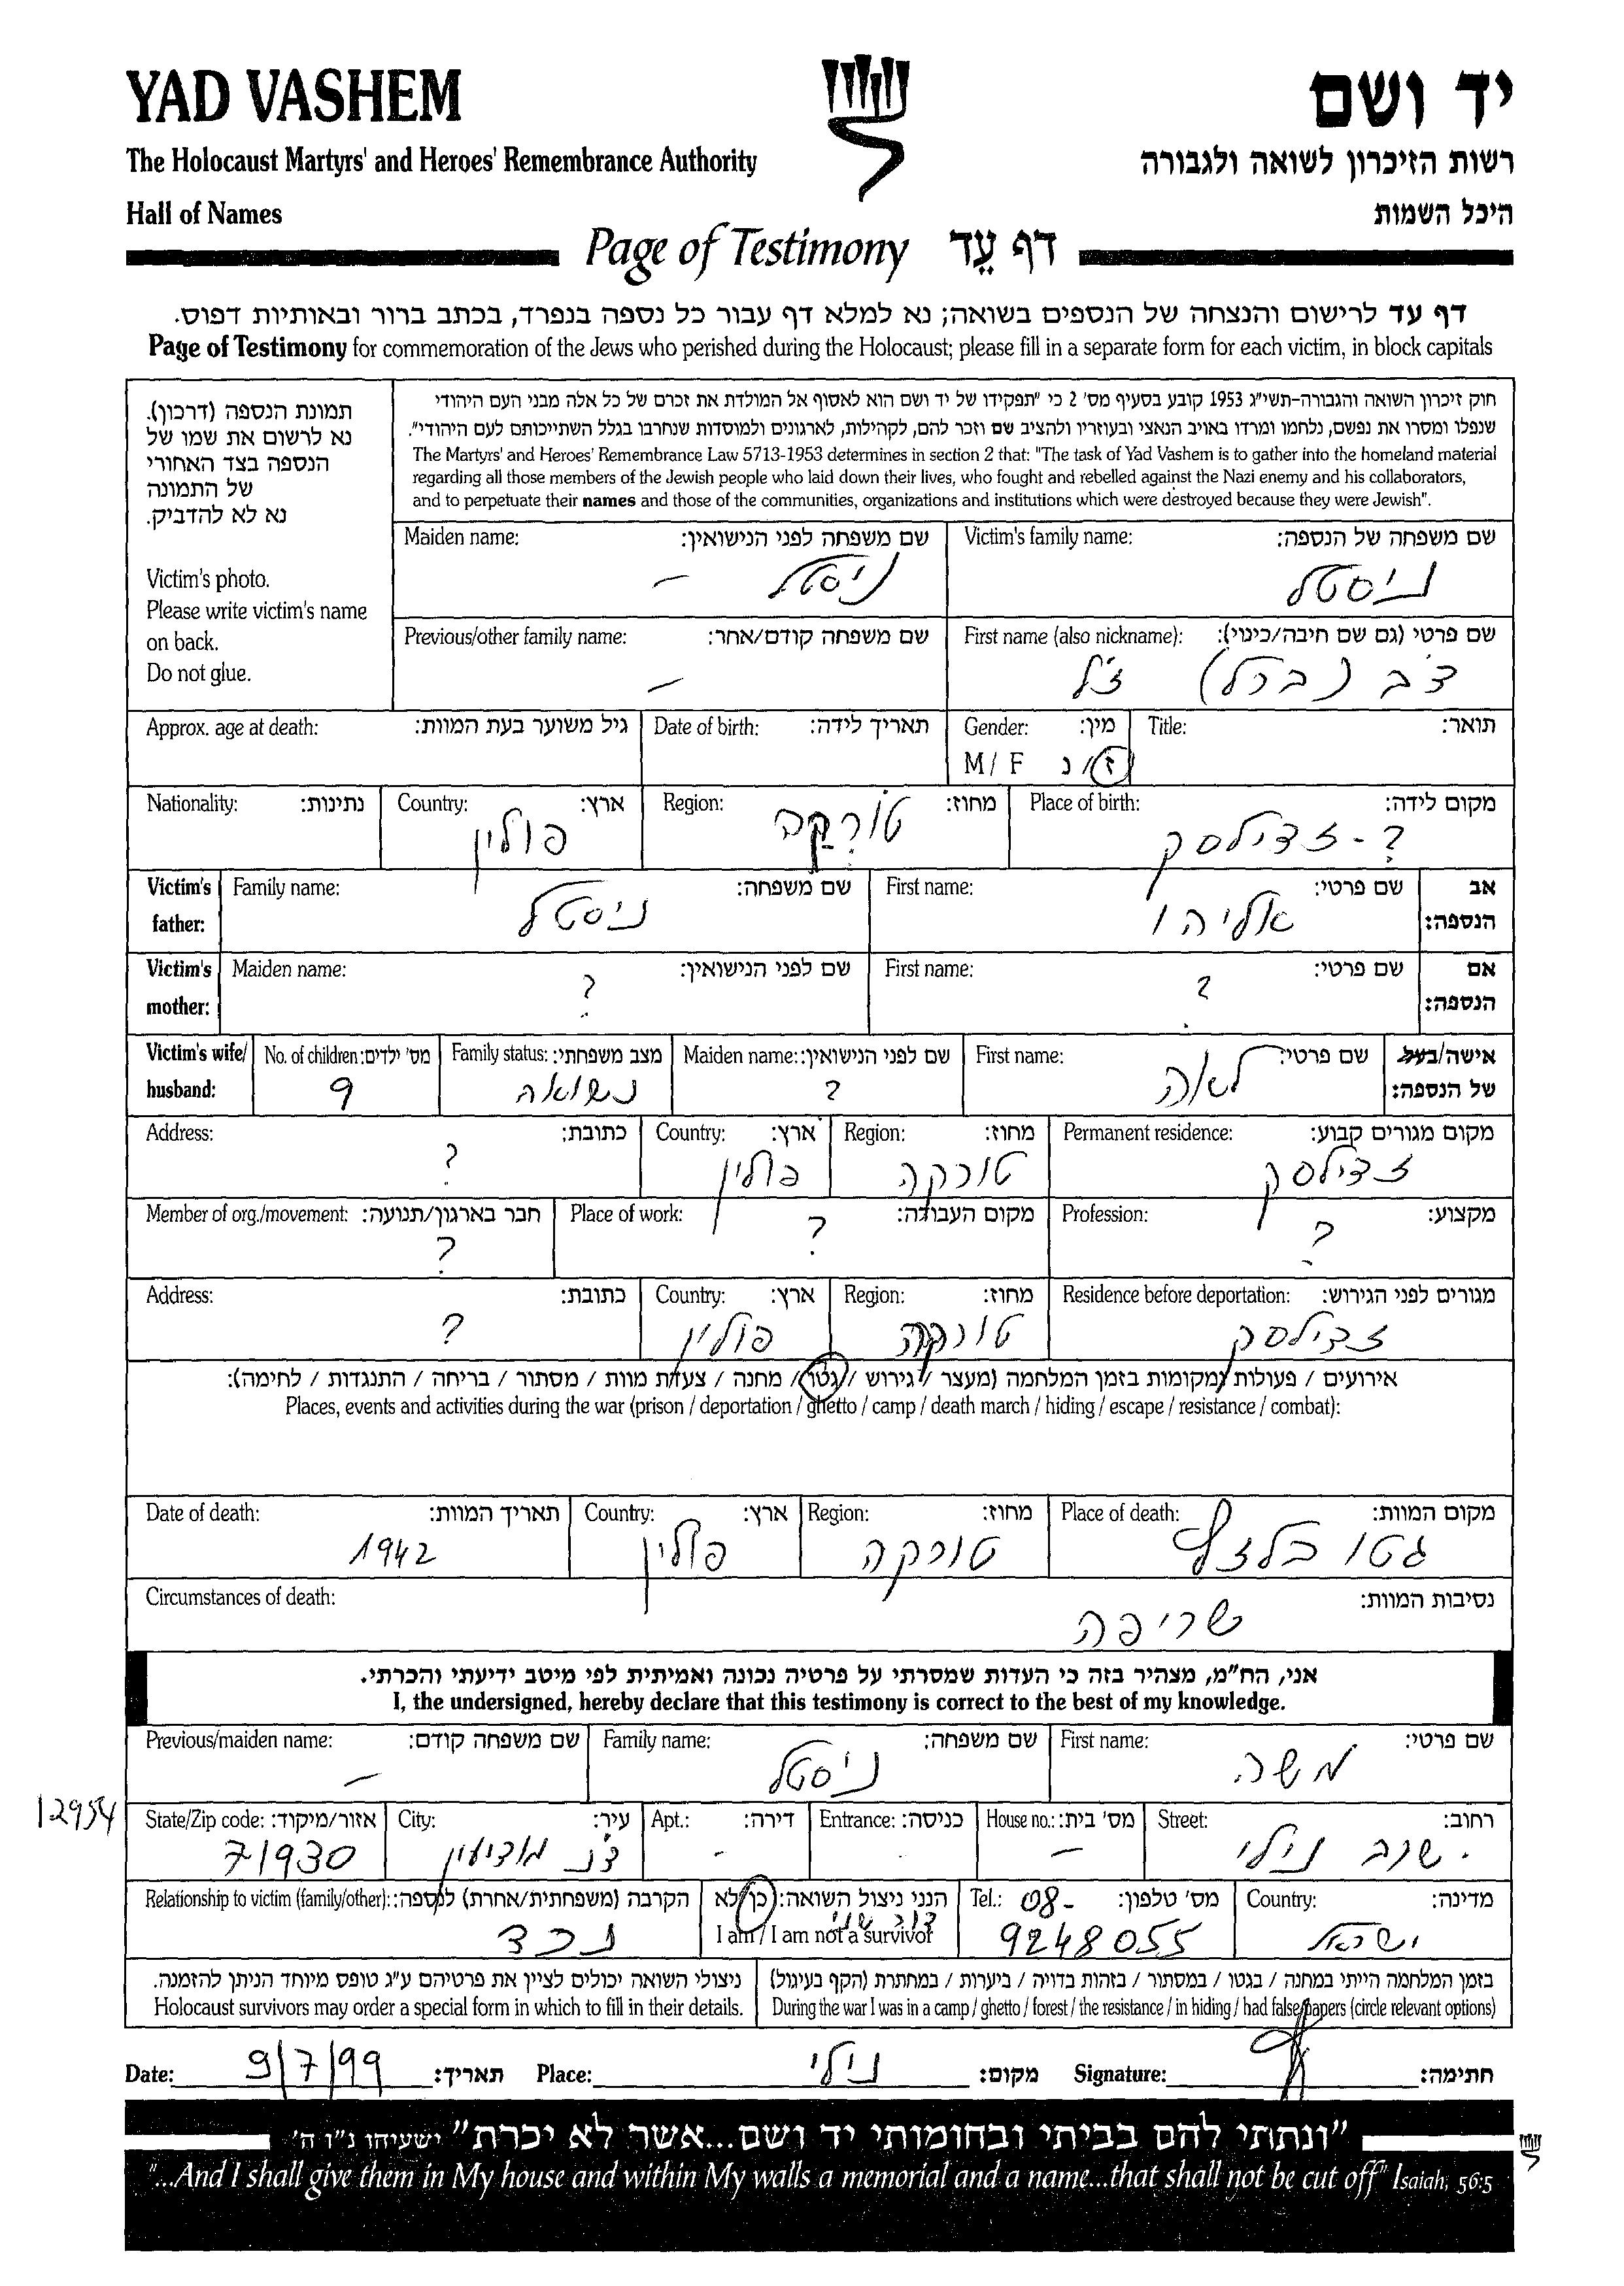 YAD VASHEM
יד ושם
The Holocaust Martyrs' and Heroes' Remembrance Authority
רשות הזיכרון לשואה ולגבורה
Hall of Names
היכל השמות
Page of Testimony דף עֵד
דף עד לרישום והנצחה של הנספים בשואה; נא למלא דף עבור כל נספה בנפרד, בכתב ברור ובאותיות דפוס.
Page of Testimony for commemoration of the Jews who perished during the Holocaust; please fill in a separate form for each victim, in block capitals
תמונת הנספה (דרכון).
נא לרשום את שמו של
הנספה בצד האחורי
של התמונה
נא לא להדביק.
Victim's photo.
Please write victim's name
on back.
Do not glue.
חוק זיכרון השואה והגבורה-תשי"ג 1953 קובע בסעיף מס' 2 כי "תפקידו של יד ושם הוא לאסוף אל המולדת את זכרם של כל אלה מבני העם היהודי
שנפלו ומסרו את נפשם, נלחמו ומרדו באויב הנאצי ובעוזריו ולהציב שם וזכר להם, לקהילות, לארגונים ולמוסדות שנחרבו בגלל השתייכותם לעם היהודי".
The Martyrs' and Heroes' Remembrance Law 5713-1953 determines in section 2 that: "The task of Yad Vashem is to gather into the homeland material
regarding all those members of the Jewish people who laid down their lives, who fought and rebelled against the Nazi enemy and his collaborators,
and to perpetuate their names and those of the communities, organizations and institutions which were destroyed because they were Jewish".
Victim's family name: שם משפחה של הנספה:
ניסטל
Maiden name: שם משפחה לפני הנישואין:
ניסטל –
First name (also nickname): שם פרטי (גם שם חיבה/כינוי):
ז"ל
Previous/other family name: שם משפחה קודם/אחר:
–
Title: תואר:
Gender: מין:
M / F ז / נ
Date of birth: תאריך לידה:
Approx. age at death: גיל משוער בעת המוות:
Place of birth: מקום לידה:
? - זדילסק
Region: מחוז:
טורקה
Country: ארץ:
פולין
Nationality: נתינות:
Victim's father: אב הנספה:
First name: שם פרטי:
אליהו
Family name: שם משפחה:
ניסטל
Victim's mother: אם הנספה:
First name: שם פרטי:
?
Maiden name: שם לפני הנישואין:
?
Victim's wife/husband: אישה/בעל של הנספה:
First name: שם פרטי:
לאה
Maiden name: שם לפני הנישואין:
?
Family status: מצב משפחתי:
נשואה
No. of children: מס' ילדים:
9
Permanent residence: מקום מגורים קבוע:
זדילסק
Region: מחוז:
טורקה
Country: ארץ:
פולין
Address: כתובת:
?
Profession: מקצוע:
?
Place of work: מקום העבודה:
?
Member of org./movement: חבר בארגון/תנועה:
?
Residence before deportation: מגורים לפני הגירוש:
זדילסק
Region: מחוז:
טורקה
Country: ארץ:
פולין
Address: כתובת:
?
אירועים / פעולות ומקומות בזמן המלחמה (מעצר / גירוש / גטו / מחנה / צעדת מוות / מסתור / בריחה / התנגדות / לחימה):
Places, events and activities during the war (prison / deportation / ghetto / camp / death march / hiding / escape / resistance / combat):
Place of death: מקום המוות:
גטו בלזץ
Region: מחוז:
טורקה
Country: ארץ:
פולין
Date of death: תאריך המוות:
1942
Circumstances of death: נסיבות המוות:
שריפה
אני, הח"מ, מצהיר בזה כי העדות שמסרתי על פרטיה נכונה ואמיתית לפי מיטב ידיעתי והכרתי.
I, the undersigned, hereby declare that this testimony is correct to the best of my knowledge.
First name: שם פרטי:
משה
Family name: שם משפחה:
ניסטל
Previous/maiden name: שם משפחה קודם:
–
12954
Street: רחוב:
ישוב נילי
House no.: מס' בית:
–
Entrance: כניסה:
-
Apt.: דירה:
-
City: עיר:
ד.נ מודיעין
State/Zip code: אזור/מיקוד:
71930
Country: מדינה:
ישראל
Tel.: מס' טלפון:
08-
9248055
הנני ניצול השואה: כן/לא
דור שני
I am / I am not a survivor
Relationship to victim (family/other): הקרבה (משפחתית/אחרת) לנספה:
נכד
בזמן המלחמה הייתי במחנה / בגטו / במסתור / בזהות בדויה / ביערות / במחתרת (הקף בעיגול)
During the war I was in a camp / ghetto / forest / the resistance / in hiding / had false papers (circle relevant options)
ניצולי השואה יכולים לציין את פרטיהם ע"ג טופס מיוחד הניתן להזמנה.
Holocaust survivors may order a special form in which to fill in their details.
Date: 9/7/99 תאריך: Place: נילי מקום: Signature: חתימה:
"ונתתי להם בביתי ובחומותי יד ושם...אשר לא יכרת" ישעיהו נ"ו ה'
"...And I shall give them in My house and within My walls a memorial and a name...that shall not be cut off" Isaiah, 56:5